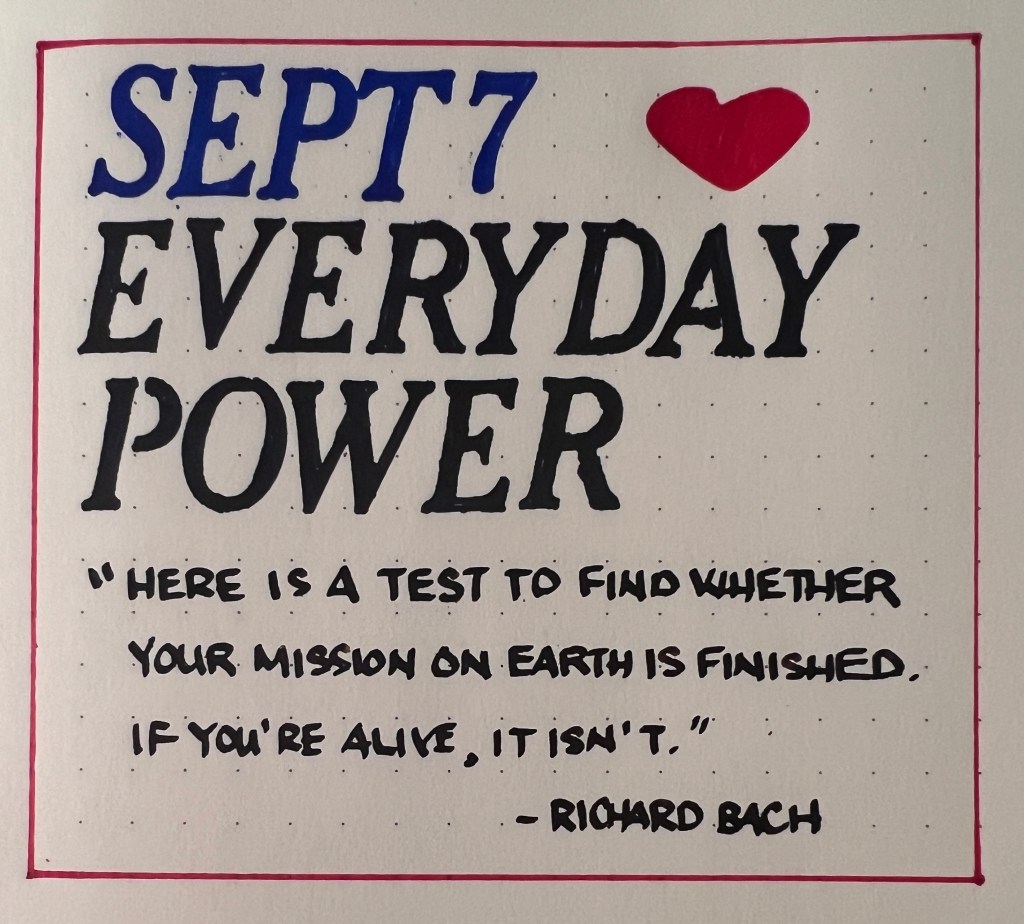 SEPT 7
EVERYDAY
POWER
"HERE IS A TEST TO FIND WHETHER
YOUR MISSION ON EARTH IS FINISHED.
IF YOU'RE ALIVE, IT ISN'T."
- RICHARD BACH